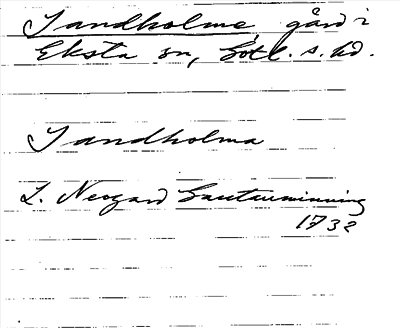 Sandholme gård i
Eksta sn, Gotl. s. hd.
Sandholma
L. Neogard Gautauminning
1732